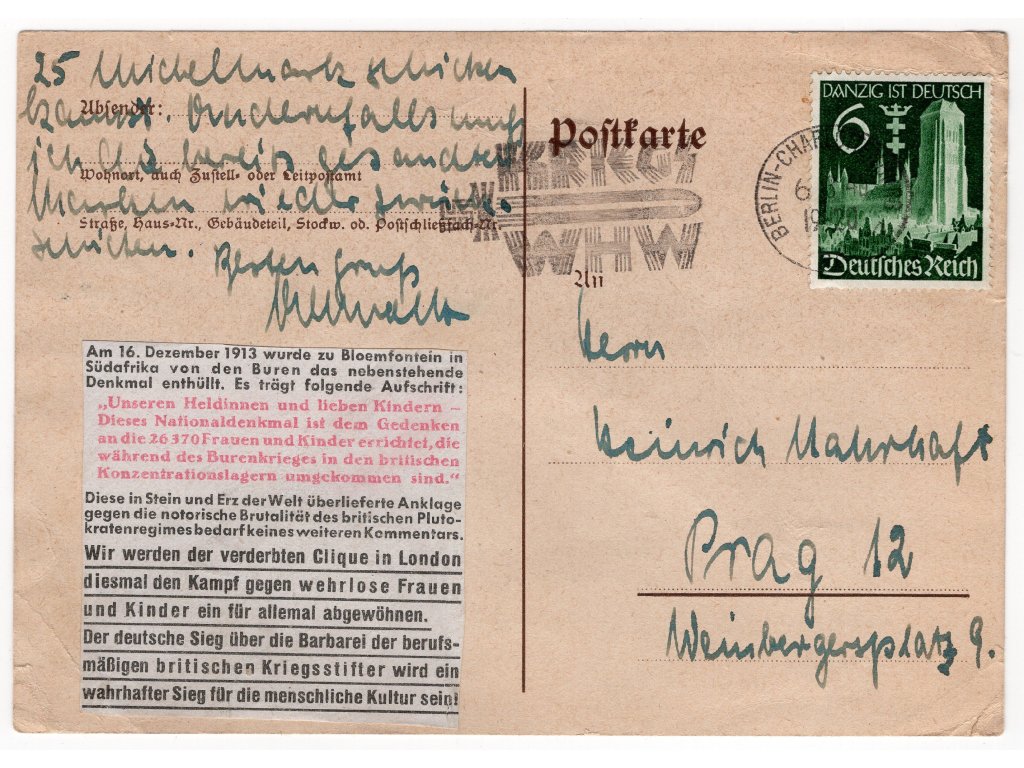 25 Michelmark schicken
kannst. Andernfalls muß
Absender:
ich die bereits gesandten
Wohnort, auch Zustell- oder Leitpostamt
Marken wieder zurück-
Straße, Haus-Nr., Gebäudeteil, Stockw. od. Postschließfach-Nr.
schicken. Besten Gruß
Am 16. Dezember 1913 wurde zu Bloemfontein in
Südafrika von den Buren das nebenstehende
Denkmal enthüllt. Es trägt folgende Aufschrift:
„Unseren Heldinnen und lieben Kindern –
Dieses Nationaldenkmal ist dem Gedenken
an die 26370 Frauen und Kinder errichtet, die
während des Burenkrieges in den britischen
Konzentrationslagern umgekommen sind.“
Diese in Stein und Erz der Welt überlieferte Anklage
gegen die notorische Brutalität des britischen Pluto-
kratenregimes bedarf keines weiteren Kommentars.
Wir werden der verderbten Clique in London
diesmal den Kampf gegen wehrlose Frauen
und Kinder ein für allemal abgewöhnen.
Der deutsche Sieg über die Barbarei der berufs-
mäßigen britischen Kriegsstifter wird ein
wahrhafter Sieg für die menschliche Kultur sein!
Postkarte
KRIEGS
WHW
BERLIN-CHAR
DANZIG IST DEUTSCH
6
Deutsches Reich
An
Herrn
Heinrich Mahrhaft
Prag 12
Weinbergersplatz 9.